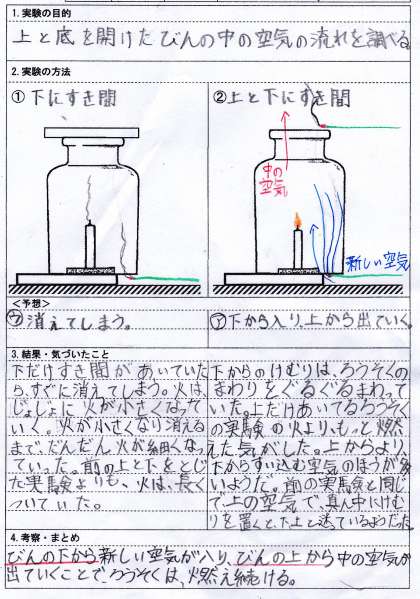 1. 実験の目的
上と底を開けたびんの中の空気の流れを調べる。
2. 実験の方法
① 下にすき間
②上と下にすき間
中の
空気
新しい空気
<予想>
㋒消えてしまう。
㋐下から入り、上から出ていく。
3. 結果・気づいたこと
下だけすき間があいていた
ら、すぐに消えてしまう。火は、
じょじょに火が小さくなって
いく。火が小さくなり消える
まで、だんだん火が細くなっ
ていった。前の上と下をとじ
た実験よりも、火は、長く
ついていた。
下からのけむりは、ろうそくの
まわりをぐるぐるまわって
いた。上だけあいてるろうそく
の実験の火より、もっと燃
えた気がした。上からより、
下からすい込む空気のほうが多
いようだ。前の実験と同じ
で上の空気で、真ん中にけむ
りを置くと、下、上と迷っているようだった。
4. 考察・まとめ
びんの下から新しい空気が入り、びんの上から中の空気が
出ていくことで、ろうそくは、燃え続ける。